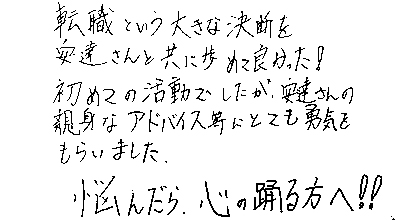 転職という大きな決断を
安達さんと共に歩めて良かった!
初めての活動でしたが、安達さんの
親身なアドバイス等にとても勇気を
もらいました.
悩んだら、心の踊る方へ!!